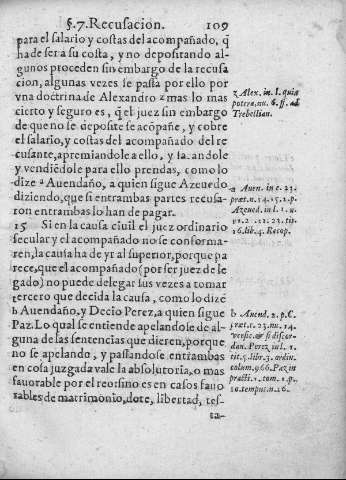 §.7. Recusacion. 109
para el salario y costas del acompañado, q̃
ha de ser a su costa, y no depositando al-
gunos proceden sin embargo de la recusa
cion, algunas vezes se passa por ello por
vna doctrina de Alexandro z mas lo mas
cierto y seguro es, q̃ el juez sin embargo
de que no se deposite se acõpañe, y cobre
el salario, y costas del acompañado del re
cusante, apremiandole a ello, y sacandole
y vendiẽdole para ello prendas, como lo
dize a Auendaño, a quien sigue Azeuedo
diziendo, que si entrambas partes recusa-
ron entrambas lo han de pagar.
15 Si en la causa ciuil el juez ordinario
secular y el acompañado no se conforma-
ren, la causa ha de yr al superior, porque pa
rece, que el acompañado (por ser juez de le
gado) no puede delegar sus vezes a tomar
tercero que decida la causa, como lo dizẽ
b Auendaño, y Decio Perez, a quien sigue
Paz. Lo qual se entiende apelandose de al-
guna de las sentencias que dieren, porque
no se apelando, y passandose entrambas
en cosa juzgada vale la absolutoria, o mas
fauorable por el reo, sino es en casos fauo
rables de matrimonio, dote, libertad, tes-
ta-
z Alex. in. l. quia
poterat, nu. 6. ff. ad
Trebellian.
a Auen. in c. 23.
præt. n. 14. 15. 2. p.
Azeued. in l. 1. n.
12. 2 21. 22. tit.
16. lib. 4. Recop.
b Auend. 2. p. C.
præt. c. 23. nu. 14.
versic. & si discor-
dan. Perez in l. 1.
tit. 5. lib. 3. ordin.
colum. 966. Paz in
practi. 1. tom. 1. p.
10. tempus. n. 26.